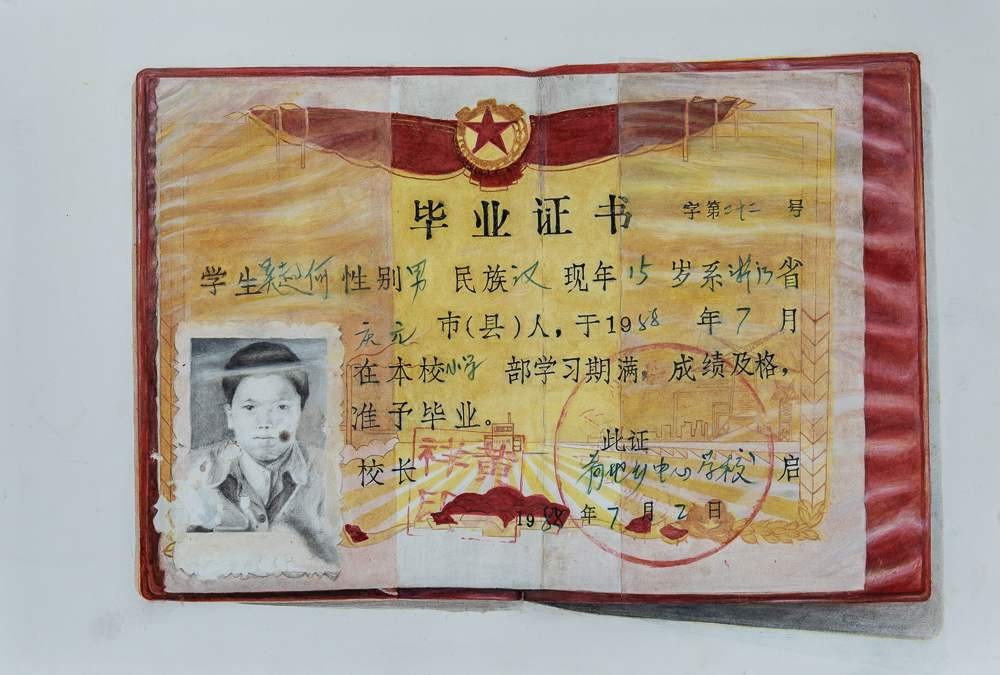 毕业证书 字第二十二号
学生吴赵何性别男 民族汉 现年15岁系浙江省
庆元 市(县)人,于1988 年7月
在本校小学 部学习期满,成绩及格,
准予毕业。
此证
校长 荷地乡中心学校 启
1988年7月2日